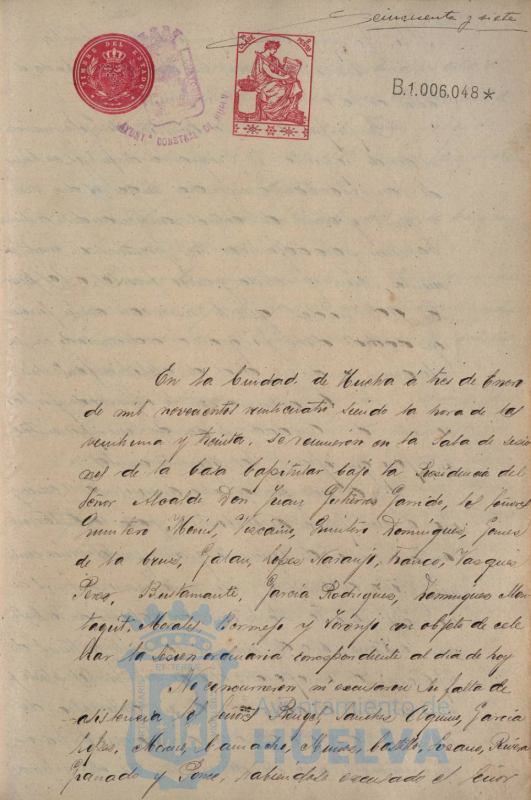 cincuenta y siete
TIMBRE DEL ESTADO
AYUNTº CONSTNAL DE HUELVA
B.1.006.048*
En la Ciudad de Huelva á tres de Enero
de mil novecientos veinticuatro siendo la hora de las
veintiuna y treinta, se reunieron en la Sala de Sesio
nes de la Casa Capitular bajo la Presidencia del
Señor Alcalde Don Juan Gutierrez Garrido, los señores
Quintero Vizcaino, Quintero Dominguez, Gomez
de la Cruz, Galan, Lopez Naranjo, Franco, Vazquez
Perez, Bustamante, Garcia Rodriguez, Dominguez Mon
taqut, Morales, Bermejo y Toronjo con objeto de cele
brar la sesion ordinaria correspondiente al dia de hoy
No concurrieron ni excusaron su falta de
asistencia los Rengel, Sanchez Garcia
Lopez, Camacho, Lozano, Rivera
Granado y Ponce, habiendose excusado el Señor
Ayuntamiento de
HUELVA